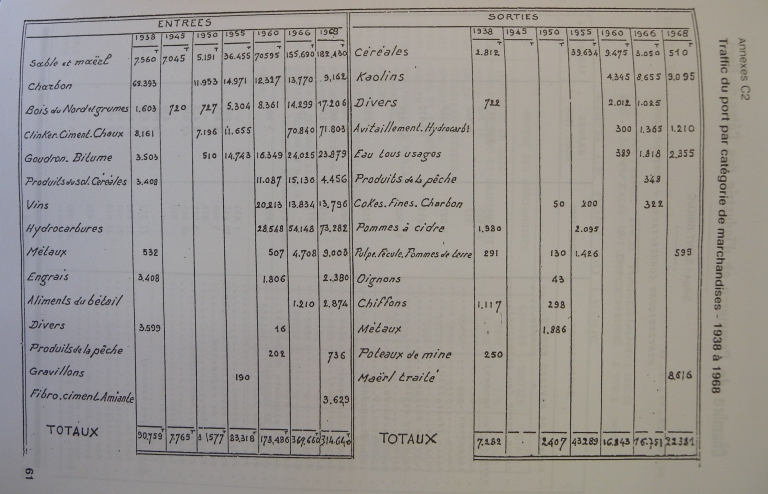 Annexes C2
Traffic du port par catégorie de marchandises - 1938 à 1968
ENTREES
1938 1945 1950 1955 1960 1966 1968
Sable et maërl 7.560 7.045 5.191 36.455 70595 155.690 182.430
Charbon 68.393 11.953 14.971 12.327 13.770 9,162
Bois du Nord et grumes 1,603 720 727 5,304 8.361 14.299 17.206
Clinker. Ciment. Chaux 8,161 7.196 11.655 70840 71.803
Goudron. Bitume 3.503 510 14.743 16.349 24,025 23.879
Produits du sol. Céréales 3.408 11.087 15,130 4.456
Vins 20,213 13.834 13,796
Hydrocarbures 28,548 54,148 73,282
Métaux 532 507 4.708 9.003
Engrais 3,408 1.806 2.380
Aliments du bétail 1.210 2,874
Divers 3.599 16
Produits de la pêche 202 736
Gravillons 190
Fibro.ciment Amiante 3.629
TOTAUX 90,759 7.765 83,318 178,486
SORTIES
1938 1945 1950 1955 1960 1966 1968
Céréales 2.812 39.634 9.475 3.050 510
Kaolins 4,345 8,655 9,095
Divers 722 2.012 1.025
Avitaillement. Hydrocarb. 300 1.365 1.210
Eau tous usages 389 1.818 2,355
Produits de la pêche 348
Cokes. Fines. Charbon 50 200 322
Pommes à cidre 1,980 2.095
Pulpe. Fécule. Pommes de terre 291 130 1.426 595
Oignons 43
Chiffons 1.117 298
Métaux 1.886
Poteaux de mine 250
Maërl traité 8,616
TOTAUX 7.282 2407 43289 16.843 16.751 22381
61